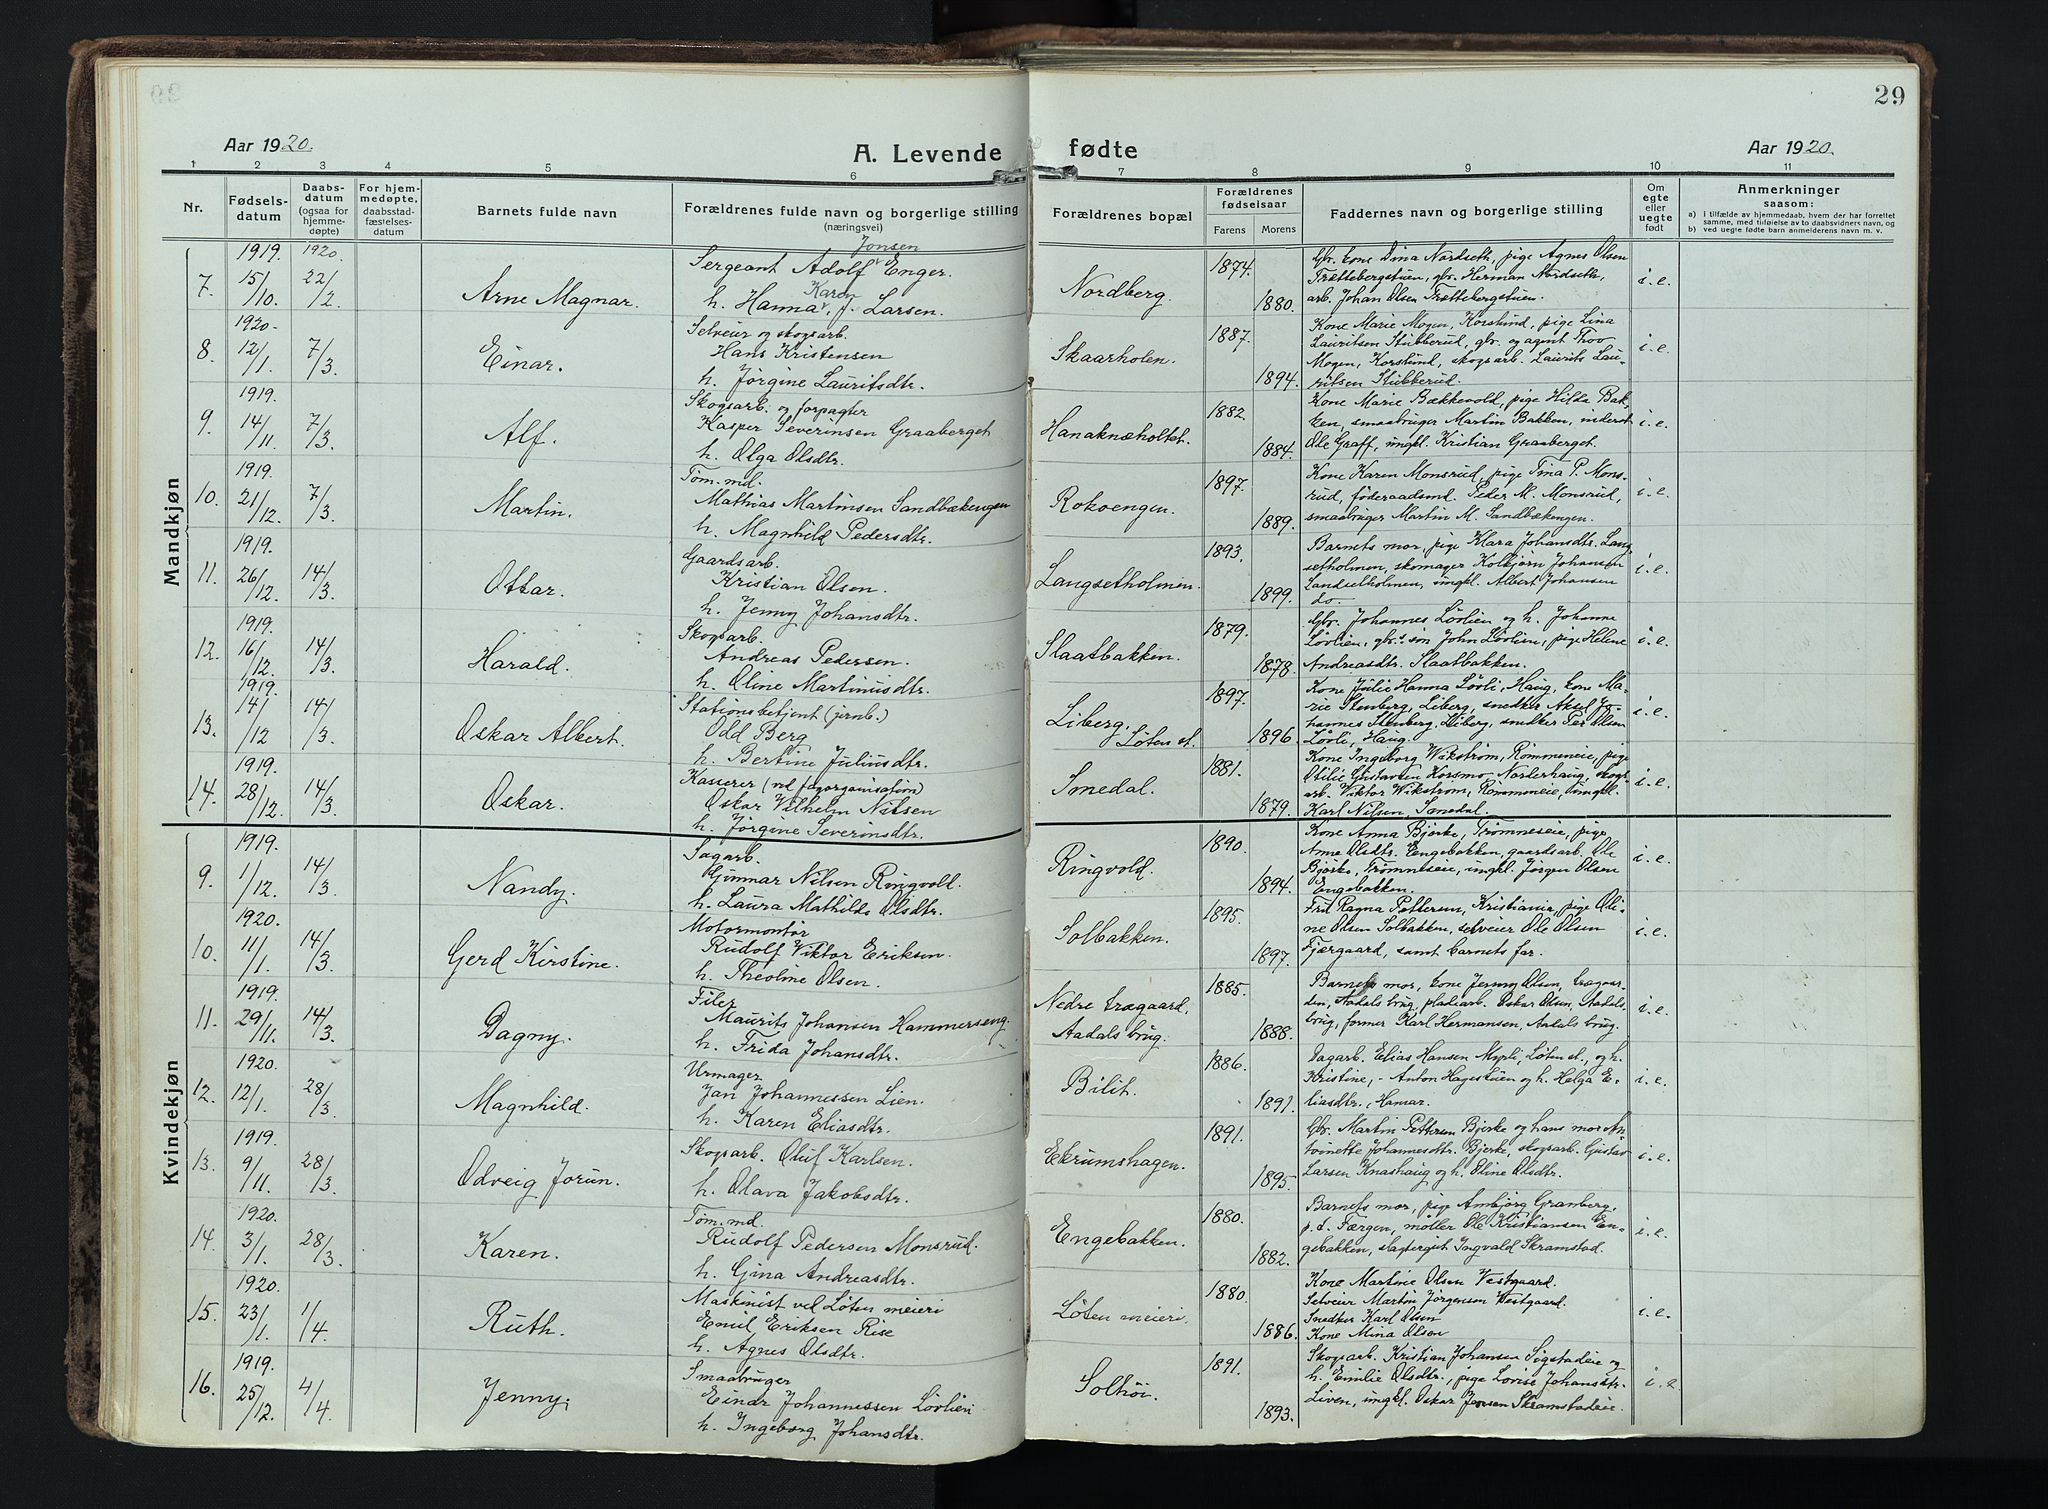 29
Aar 1920.
A. Levende fødte
Aar 1920.
1 2 3 4 5 6 7 8 9 10 11
Nr.
Fødsels-
datum
Daabs-
datum
(ogsaa for
hjemme-
døpte)
For hjem-
medøpte,
daabsstad-
fæstelses-
datum
Barnets fulde navn
Forældrenes fulde navn og borgerlige stilling
(næringsvei)
Forældrenes bopæl
Forældrenes
fødselsaar
Farens
Morens
Faddernes navn og borgerlige stilling
Om
egte
eller
uegte
født
Anmerkninger
saasom:
a) i tilfælde av hjemmedaab, hvem der har forrettet
samme, med tilføielse av to daabsvidners navn, og
b) ved uegte fødte barn anmelderens navn m. v.
Mandkjøn
7. 1919. 15/10. 1920. 22/2
Arne Magnar.
Jonsen
Sergeant Adolf Enger.
Karen
h. Hanna J. Larsen.
Nordberg.
1874.
1880.
Gbr. kone Dina Nordseth, pige Agnes Olsen
Trættebergstuen, gbr. Herman Nordseth,
arb. Johan Olsen Trættebergstuen.
i.e.
8. 1920. 12/1. 7/3.
Einar.
Selveier og skogsarb.
Hans Kristensen
h. Jørgine Lauritsdtr.
Skaarholen.
1887.
1894.
Kone Marie Mogen, Korslund, pige Lina
Lauritsen Stubberud, gbr. og agent Thov
Mogen, Korslund, skogsarb. Laurits Lau-
ritsen Stubberud.
i.e.
9. 1919. 14/11. 7/3.
Alf.
Skogsarb. og forpagter
Kasper Severinsen Graaberget
h. Olga Olsdtr.
Hanaknæholtet.
1882.
1884.
Kone Marie Bækkevold, pige Hilda Bak-
ken, smaabruger Martin Bakken, inderst
Ole Graff, ungkl. Kristian Graaberget.
i.e.
10. 1919. 21/12. 7/3.
Martin.
Tøm.md.
Mathias Martinsen Sandbækengen
h. Magnhild Pedersdtr.
Rokoengen.
1897.
1889.
Kone Karen Monsrud, pige Tina P. Mons-
rud, føderaadsmd. Peder M. Monsrud,
smaabruger Martin M. Sandbækengen.
i.e.
11. 1919. 26/12. 14/3.
Ottar.
Gaardsarb.
Kristian Olsen.
h. Jenny Johansdtr.
Langsetholmen.
1893.
1899.
Barnets mor, pige Klara Johansdtr. Lang-
setholmen, skomager Kolbjørn Johansen
Landsetholmen, ungkl. Albert Johansen
do.
i.e.
12. 1919. 16/12. 14/3.
Harald.
Skogsarb.
Andreas Pedersen.
h. Oline Martinusdtr.
Slaatbakken.
1879.
1878.
Gbr. Johannes Løvlien og h. Johanne
Løvlien, gbr.s søn John Løvlien, pige Helene
Andreasdtr. Slaatbakken.
i.e.
13. 1919. 14/12 14/3.
Oskar Albert.
Stationsbetjent (jernb.)
Odd Berg
h. Bertine Juliusdtr.
Liberg,
Løten st.
1897.
1896.
Kone Julie Hanna Løvli, Haug, kone Ma-
rie Stenberg, Liberg, snedker Aksel Jo-
hannes Stenberg, Liberg, snedker Per Olsen
Løvli, Haug.
i.e.
14. 1919. 28/12. 14/3.
Oskar.
Kasserer (ved fagorganisation)
Oskar Vilhelm Nilsen
h. Jørgine Severinsdtr.
Smedal.
1881.
1879.
Kone Ingeborg Wikstrøm, Rømmeneie, pige
Otilie Gustavsen Korsmo, Norderhaug, skogs-
arb. Viktor Wikstrøm, Rømmeneie, ungkl.
Karl Nilsen, Smedal.
i.e.
Kvindekjøn
9. 1919. 1/12. 14/3.
Nandy.
Sagarb.
Gunnar Nilsen Ringvoll.
h. Laura Mathilde Olsdtr.
Ringvold.
1890.
1894.
Kone Anna Bjørke, Trømneseie, pige
Anne Olsdtr. Engebakken, gaardsarb. Ole
Bjørke, Trømneseie, ungkl. Jørgen Olsen
Engebakken.
i.e.
10. 1920. 11/1. 14/3.
Gerd Kirstine.
Motormontør
Rudolf Viktor Eriksen.
h. Theoline Olsen.
Solbakken.
1895.
1897.
Frk. Ragna Pettersen, Kristiania, pige Oli-
ne Olsen Solbakken, selveier Ole Olsen
Fjærgaard, samt barnets far.
i.e.
11. 1919. 29/11. 14/3.
Dagny.
Filer
Maurits Johansen Hammerseng.
h. Frida Johansdtr.
Nedre trægaard,
Aadals brug.
1885.
1888.
Barnets mor, kone Jenny Olsen, trægaar-
den, Aadals brug, pladearb. Oskar Olsen, Aadals
brug, former Karl Hermansen, Aadals brug.
i.e.
12. 1920. 12/1. 28/3.
Magnhild.
Urmager
Jan Johannessen Lien.
h. Karen Eliasdtr.
Bilit.
1886.
1891.
Dagarb. Elias Hansen Myrli, Løten st., og h.
Kristine, - Anton Hagestuen og h. Helga E-
liasdtr., Hamar.
i.e.
13. 1919. 9/11. 28/3.
Odveig Jorun.
Skogsarb. Oluf Karlsen.
h. Olava Jakobsdtr.
Ekrumshagen.
1891.
1895.
Gbr. Martin Pettersen Bjerke og hans mor An-
toinette Johannesdtr. Bjerke, skogsarb. Gustav
Larsen Knashaug og h. Oline Olsdtr.
i.e.
14. 1920. 3/1. 28/3.
Karen.
Tøm.md.
Rudolf Pedersen Monsrud.
h. Gina Andreasdtr.
Engebakken.
1880.
1882.
Barnets mor, pige Ambjørg Granberg,
p.t. Færgen, møller Ole Kristiansen En-
gebakken, slagtergut Ingvald Skramstad.
i.e.
15. 1920. 23/1. 1/4.
Ruth.
Maskinist ved Løten meieri
Emil Eriksen Rise
h. Agnes Olsdtr.
Løten meieri.
1880.
1886.
Kone Martine Olsen Vestgaard.
Selveier Martin Jørgensen Vestgaard.
Snedker Karl Olsen
Kone Mina Olsen
i.e.
16. 1919. 25/12. 4/4.
Jenny.
Smaabruger
Einar Johannessen Løvlien
h. Ingeborg Johansdtr.
Solhøi.
1891.
1893.
Skogsarb. Kristian Johansen Sigstadeie og
h. Emilie Olsdtr., pige Lovise Johansdtr.
Liven, ungkl. Oskar Jensen Skramstadeie.
i.e.